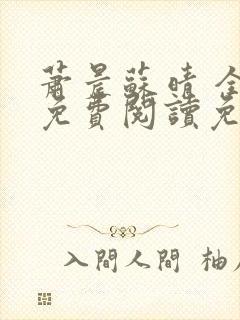 蕭晨蘇晴全
免費閱讀免
入間人間 柚